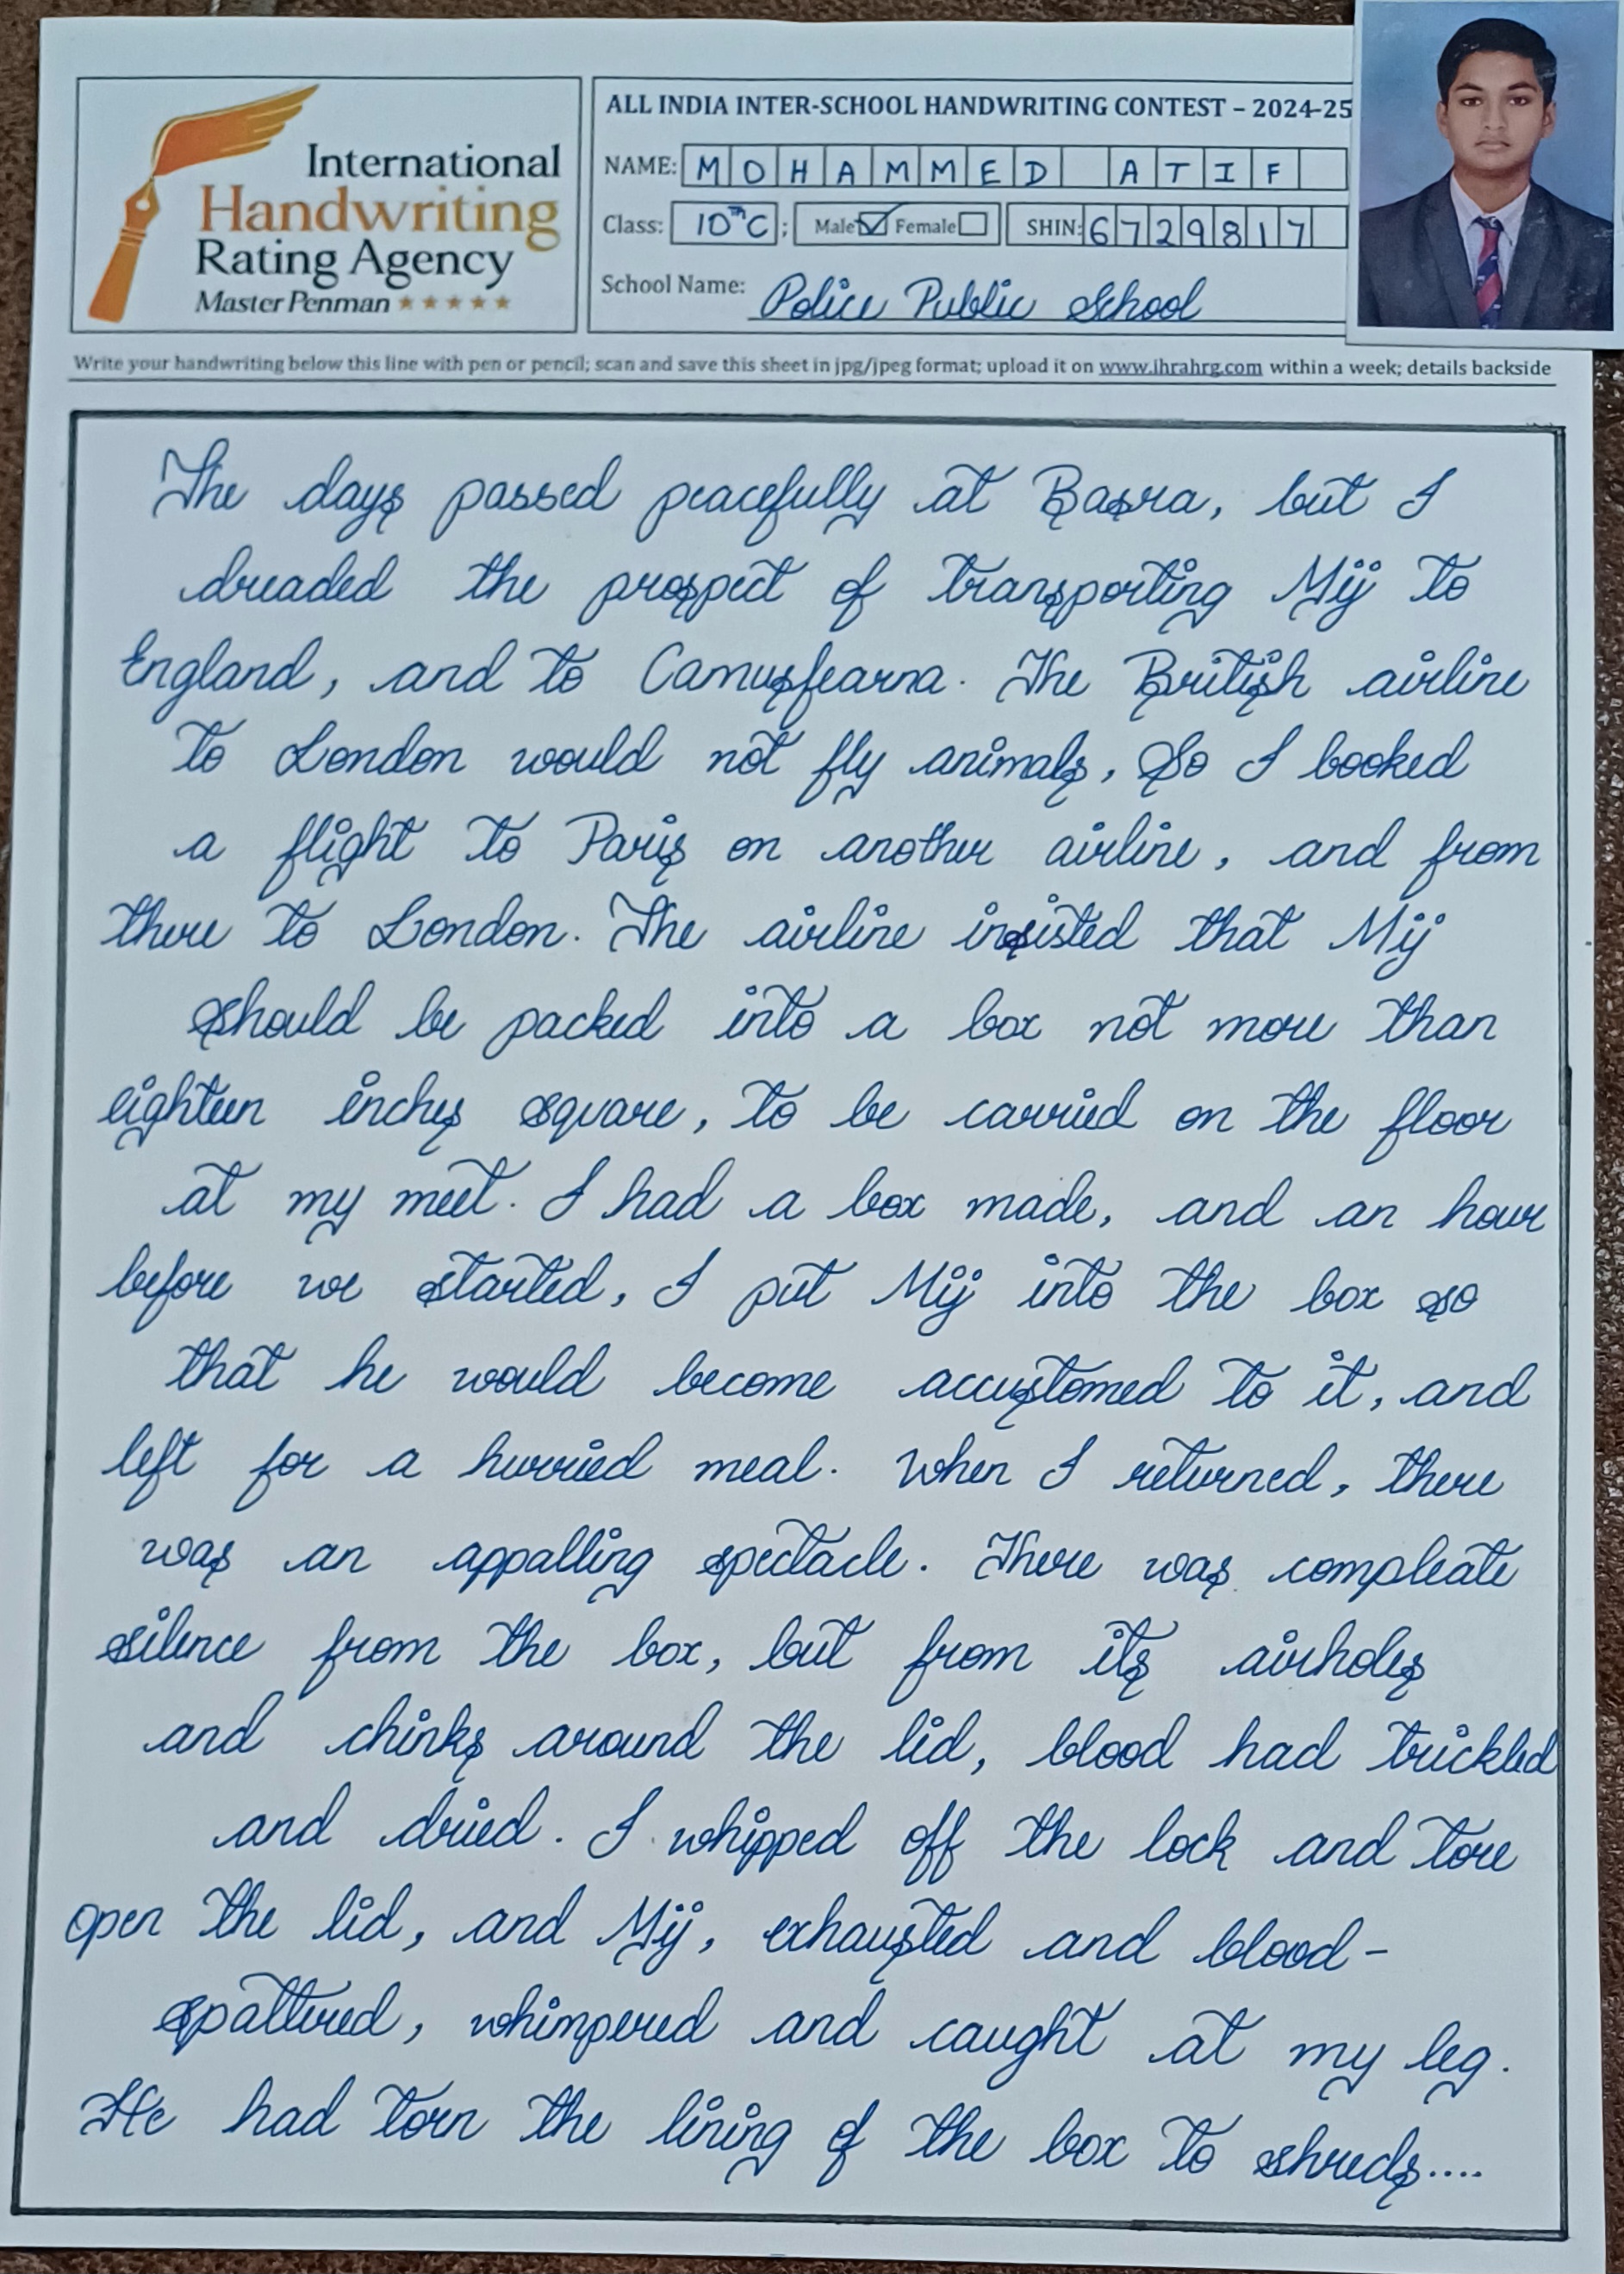 International
Handwriting
Rating Agency
Master Penman
ALL INDIA INTER-SCHOOL HANDWRITING CONTEST – 2024-25
NAME: MOHAMMED ATIF
Class: 10th C ; Male Female SHIN: 6729817
School Name: Police Public School
Write your handwriting below this line with pen or pencil; scan and save this sheet in jpg/jpeg format; upload it on www.ihrahrg.com within a week; details backside
The days passed peacefully at Basra, but I
dreaded the prospect of transporting Mij to
England, and to Camusfearna. The British airline
to London would not fly animals, So I booked
a flight to Paris on another airline, and from
there to London. The airline insisted that Mij
should be packed into a box not more than
eighteen inches square, to be carried on the floor
at my meet. I had a box made, and an hour
before we started, I put Mij into the box so
that he would become accustomed to it, and
left for a hurried meal. When I returned, there
was an appalling spectacle. There was compleate
silence from the box, but from its airholes
and chinks around the lid, blood had trickled
and dried. I whipped off the lock and tore
open the lid, and Mij, exhausted and blood-
spattered, whimpered and caught at my leg.
He had torn the lining of the box to shreds....